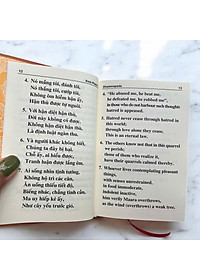 12
4. Nó mắng tôi, đánh tôi,
Nó thắng tôi, cướp tôi,
Không ôm hiềm hận ấy,
Hận thù được tự nguôi.
5. Với hận diệt hận thù,
Đời này không có được,
Không hận diệt hận thù,
Là định luật ngàn thu.
6. Và người khác không biết,
Chúng ta đây bị hại.
Chỗ ấy, ai hiểu được,
Tranh luận được lắng êm.
7. Ai sống nhìn tịnh tướng,
Không hộ trì các căn,
Ăn uống thiếu tiết độ,
Biếng nhác, chẳng tinh cần.
Ma uy hiếp kẻ ấy,
Như cây yếu trước gió.
Dhammapada
13
4. "He abused me, he beat me,
he defeated me, he robbed me",
in those who do not harbour such thoughts
hatred is appeased.
5. Hatred never cease through hatred in
this world;
through love alone they cease.
This is an eternal law.
6. The others know not that in this quarrel
we perish;
those of them who realize it,
have their quarrels calmed thereby.
7. Whoever lives contemplating pleasant
things,
with senses unrestrained,
in food immoderate,
indolent inactive,
him verily Maara overthrows,
as the wind (overthrows) a weak tree.